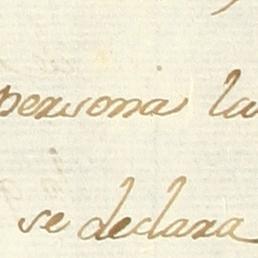 persona la
se declara